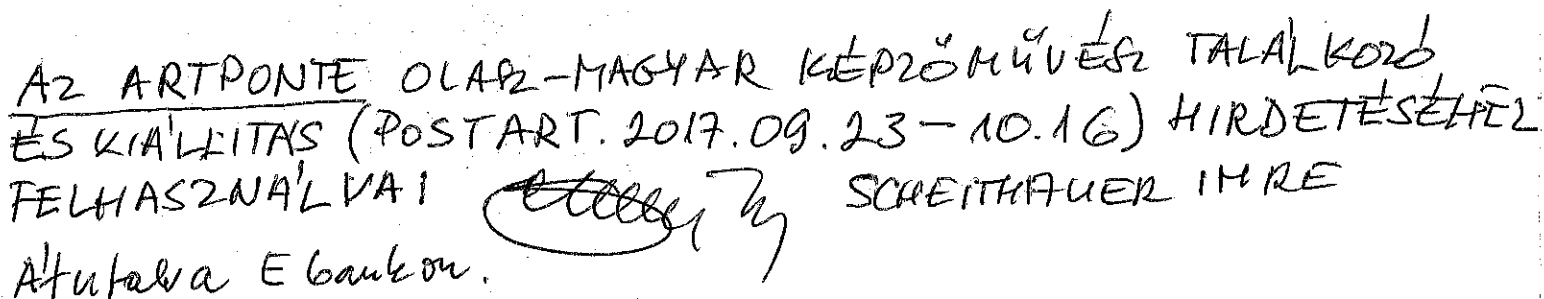 AZ ARTPONTE OLASZ-MAGYAR KÉPZŐMŰVÉSZ TALÁLKOZÓ
ÉS KIÁLLÍTÁS (POSTART. 2017.09.23-10.16) HIRDETÉSÉHEZ
FELHASZNÁLVA! SCHEITHAUER IMRE
Átutalva E bankon.